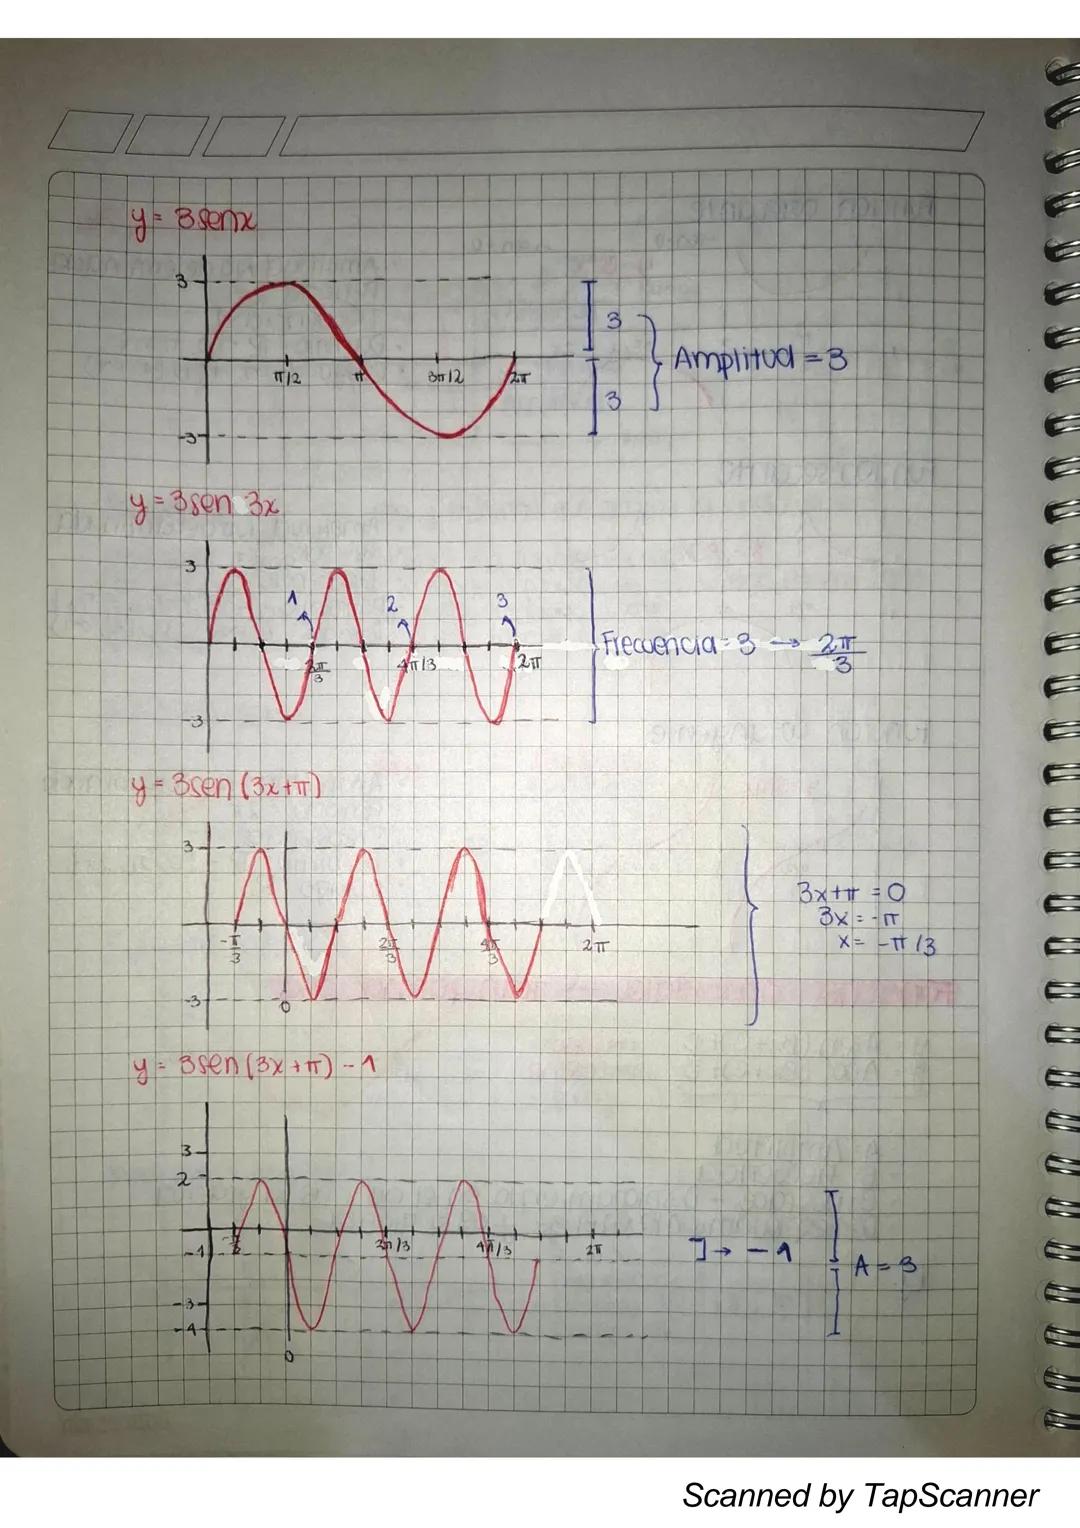 y = 3senx
3
π/2
π
3π/2
2π
-3
3
3
Amplitud = 3
y = 3sen 3x
3
1
2
3
2π/3
4π/3
2π
-3
Frecuencia = 3 → 2π/3
y = 3sen (3x+π)
3
-π/3
2π/3
4π/3
2π
-3
0
3x+π = 0
3x = -π
x = -π/3
y = 3sen (3x+π) - 1
3
2
-1
2π/3
4π/3
2π
-3
-4
0
] → -1
A = 3
Scanned by TapScanner